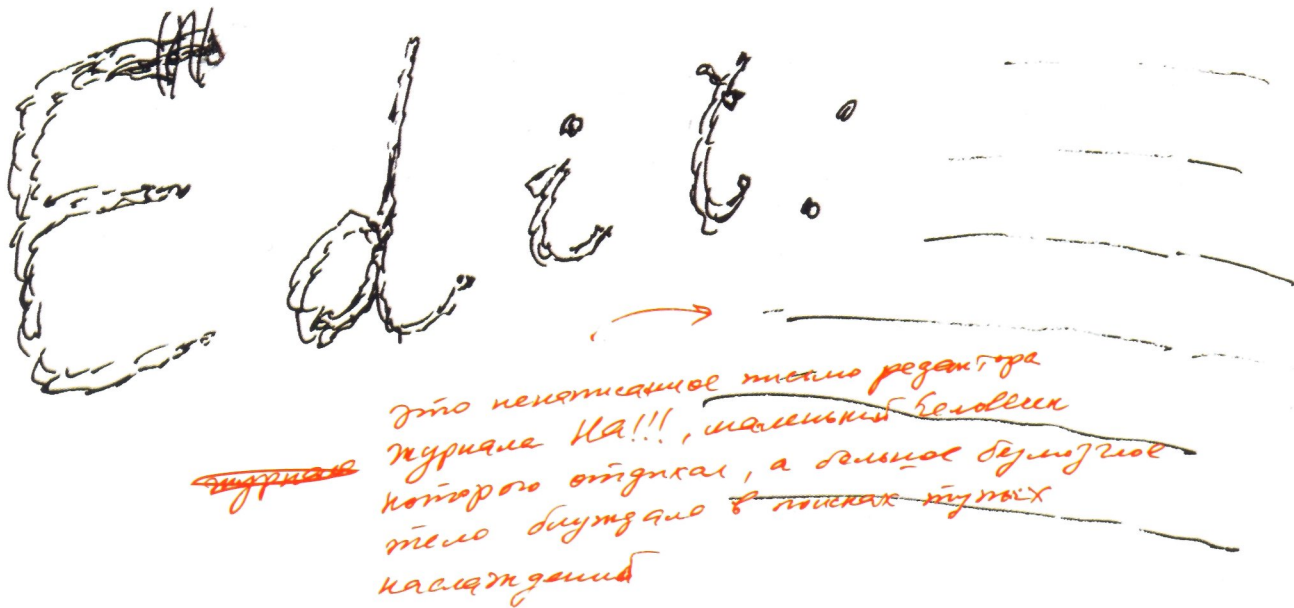 Edit:
это ненаписанное письмо редактора
журнала На!!!, маленький человек
журнал
которого отдыхал, а большое безмозглое
тело блуждало в поисках тупых
наслаждений